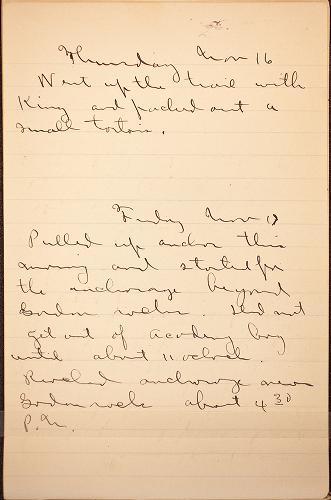 Thursday Nov 16
Went up the trail with
King and packed out a
small tortoise.
Friday Nov 17
Pulled up anchor this
morning and started for
the anchorage beyond
Gordon rocks. Did not
get out of Academy bay
until about 11 oclock.
Reached anchorage near
Gordon rocks about 4 30
P.M.